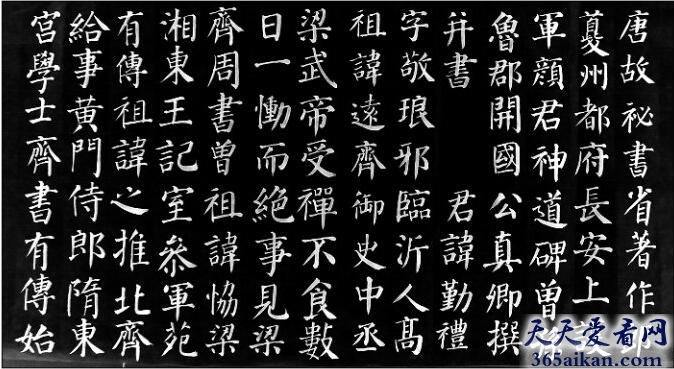 唐故祕書省著作
夔州都府長安上
軍顏君神道碑曽
魯郡開國公真卿撰
并書 君諱勤禮
字敬琅邪臨沂人髙
祖諱遠齊御史中丞
梁武帝受禪不食數
日一慟而絕事見梁
齊周書曽祖諱恊梁
湘東王記室叅軍苑
有傳祖諱之推北齊
給事黃門侍郎隋東
宮學士齊書有傳始
天天爱看网
365aikan.com